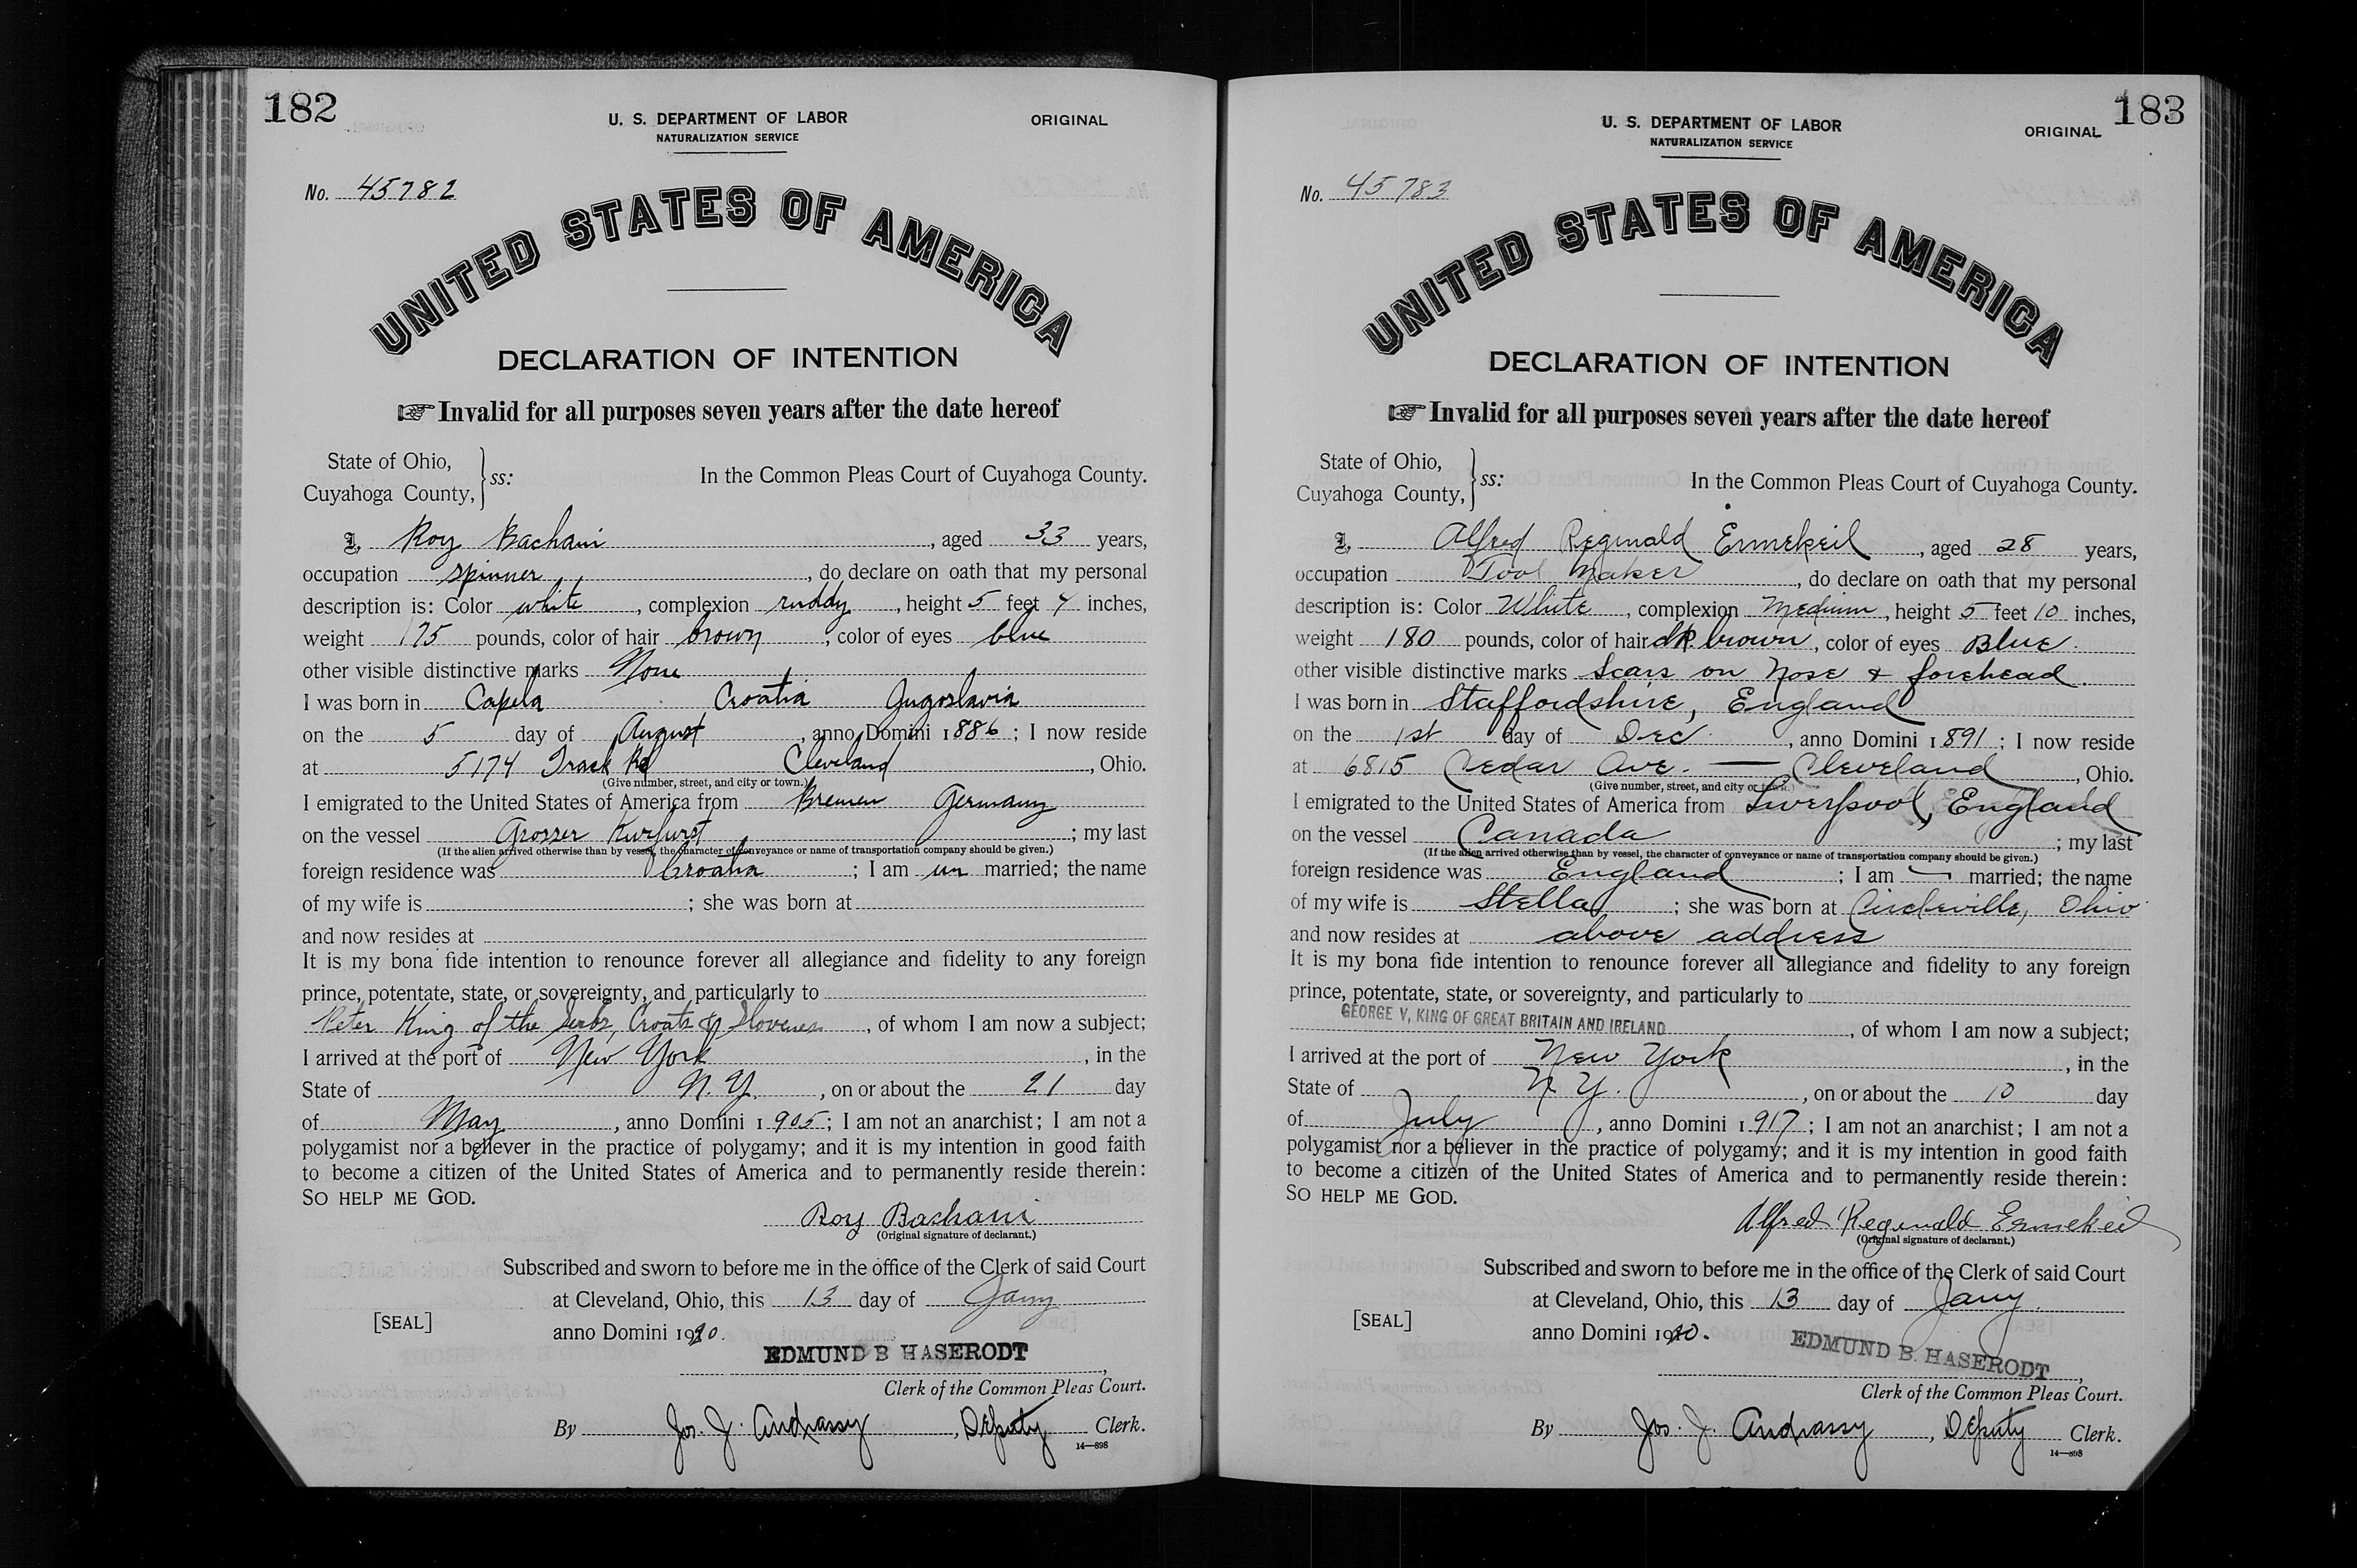 182
U. S. DEPARTMENT OF LABOR
NATURALIZATION SERVICE
ORIGINAL
No. 45782
UNITED STATES OF AMERICA
DECLARATION OF INTENTION
☞ Invalid for all purposes seven years after the date hereof
State of Ohio,
Cuyahoga County, } ss: In the Common Pleas Court of Cuyahoga County.
I, Roy Bachani, aged 33 years,
occupation spinner, do declare on oath that my personal
description is: Color white, complexion ruddy, height 5 feet 4 inches,
weight 175 pounds, color of hair brown, color of eyes blue
other visible distinctive marks None
I was born in Capela Croatia Jugoslavia
on the 5 day of August, anno Domini 1886; I now reside
at 5174 Rd Cleveland, Ohio.
(Give number, street, and city or town.)
I emigrated to the United States of America from Bremen Germany
on the vessel Grosser Kurfurst; my last
(If the alien arrived otherwise than by vessel, the character of conveyance or name of transportation company should be given.)
foreign residence was Croatia; I am un married; the name
of my wife is ; she was born at
and now resides at
It is my bona fide intention to renounce forever all allegiance and fidelity to any foreign
prince, potentate, state, or sovereignty, and particularly to
Peter King of the Serbs, Croats & Slovenes, of whom I am now a subject;
I arrived at the port of New York, in the
State of N. Y., on or about the 21 day
of May, anno Domini 1905; I am not an anarchist; I am not a
polygamist nor a believer in the practice of polygamy; and it is my intention in good faith
to become a citizen of the United States of America and to permanently reside therein:
SO HELP ME GOD.
Roy Bachani
(Original signature of declarant.)
Subscribed and sworn to before me in the office of the Clerk of said Court
at Cleveland, Ohio, this 13 day of Jany
[SEAL]
anno Domini 1920.
EDMUND B HASERODT,
Clerk of the Common Pleas Court.
By Jos. J. Andrassy, Deputy Clerk.
14—898
183
U. S. DEPARTMENT OF LABOR
NATURALIZATION SERVICE
ORIGINAL
No. 45783
UNITED STATES OF AMERICA
DECLARATION OF INTENTION
☞ Invalid for all purposes seven years after the date hereof
State of Ohio,
Cuyahoga County, } ss: In the Common Pleas Court of Cuyahoga County.
I, Alfred Reginald Ermekeil, aged 28 years,
occupation Tool Maker, do declare on oath that my personal
description is: Color White, complexion Medium, height 5 feet 10 inches,
weight 180 pounds, color of hair dk. brown, color of eyes Blue.
other visible distinctive marks Scars on nose & forehead.
I was born in Staffordshire, England
on the 1st day of Dec., anno Domini 1891; I now reside
at 6815 Cedar Ave. — Cleveland, Ohio.
(Give number, street, and city or town.)
I emigrated to the United States of America from Liverpool, England
on the vessel Canada; my last
(If the alien arrived otherwise than by vessel, the character of conveyance or name of transportation company should be given.)
foreign residence was England; I am — married; the name
of my wife is Stella; she was born at Circleville, Ohio
and now resides at above address
It is my bona fide intention to renounce forever all allegiance and fidelity to any foreign
prince, potentate, state, or sovereignty, and particularly to
GEORGE V, KING OF GREAT BRITAIN AND IRELAND, of whom I am now a subject;
I arrived at the port of New York, in the
State of N Y., on or about the 10 day
of July, anno Domini 1917; I am not an anarchist; I am not a
polygamist nor a believer in the practice of polygamy; and it is my intention in good faith
to become a citizen of the United States of America and to permanently reside therein:
SO HELP ME GOD.
Alfred Reginald Ermekeil
(Original signature of declarant.)
Subscribed and sworn to before me in the office of the Clerk of said Court
at Cleveland, Ohio, this 13 day of Jany.
[SEAL]
anno Domini 1920.
EDMUND B. HASERODT,
Clerk of the Common Pleas Court.
By Jos. J. Andrassy, Deputy Clerk.
14—898